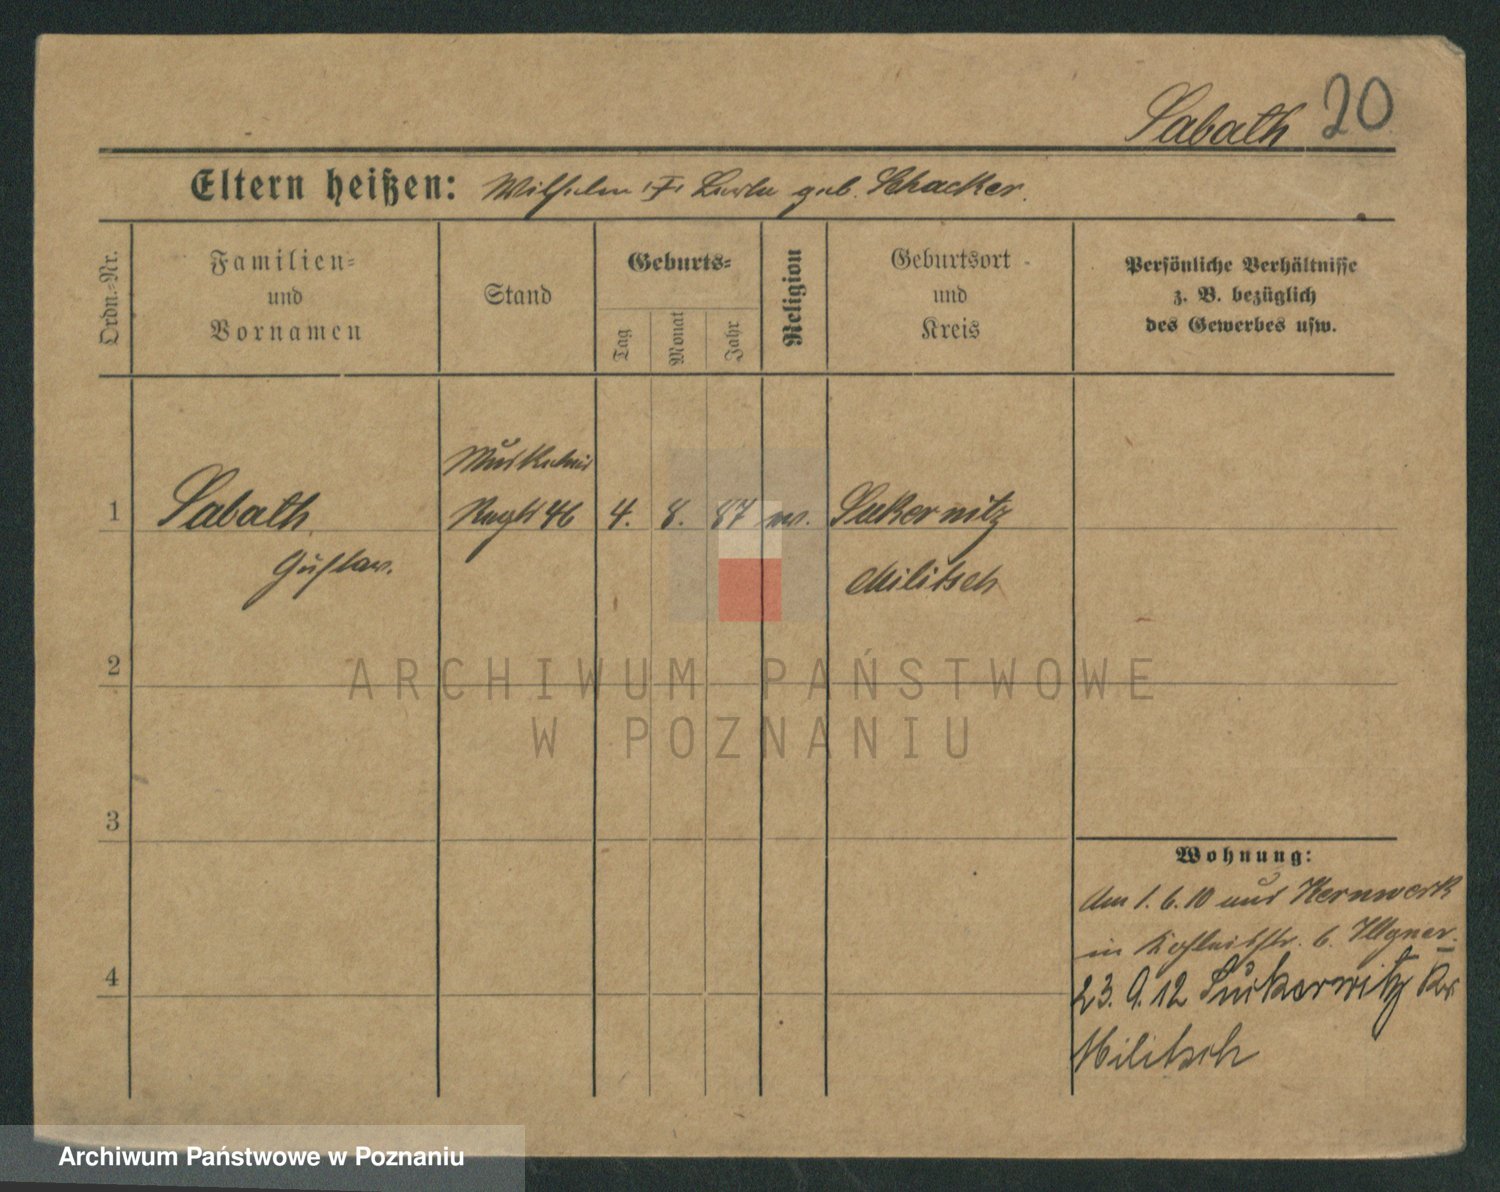 Sabath 20
Eltern heißen: Wilhelm geb. Schacker.
Ordn.-Nr.
Familien-
und
Vornamen
Stand
Geburts-
Tag
Monat
Jahr
Religion
Geburtsort
und
Kreis
Persönliche Verhältnisse
z. B. bezüglich
des Gewerbes usw.
Musketier
1 Sabath Regt 46 4. 8. 87 ev.
Gustav. Militsch
2
ARCHIWUM PAŃSTWOWE
W POZNANIU
3
Wohnung:
Am 1. 6. 10 aus Kernwerk
in 6. Illgner.
4
23. 9. 12 Suckerwitz Kr.
Militsch
Archiwum Państwowe w Poznaniu